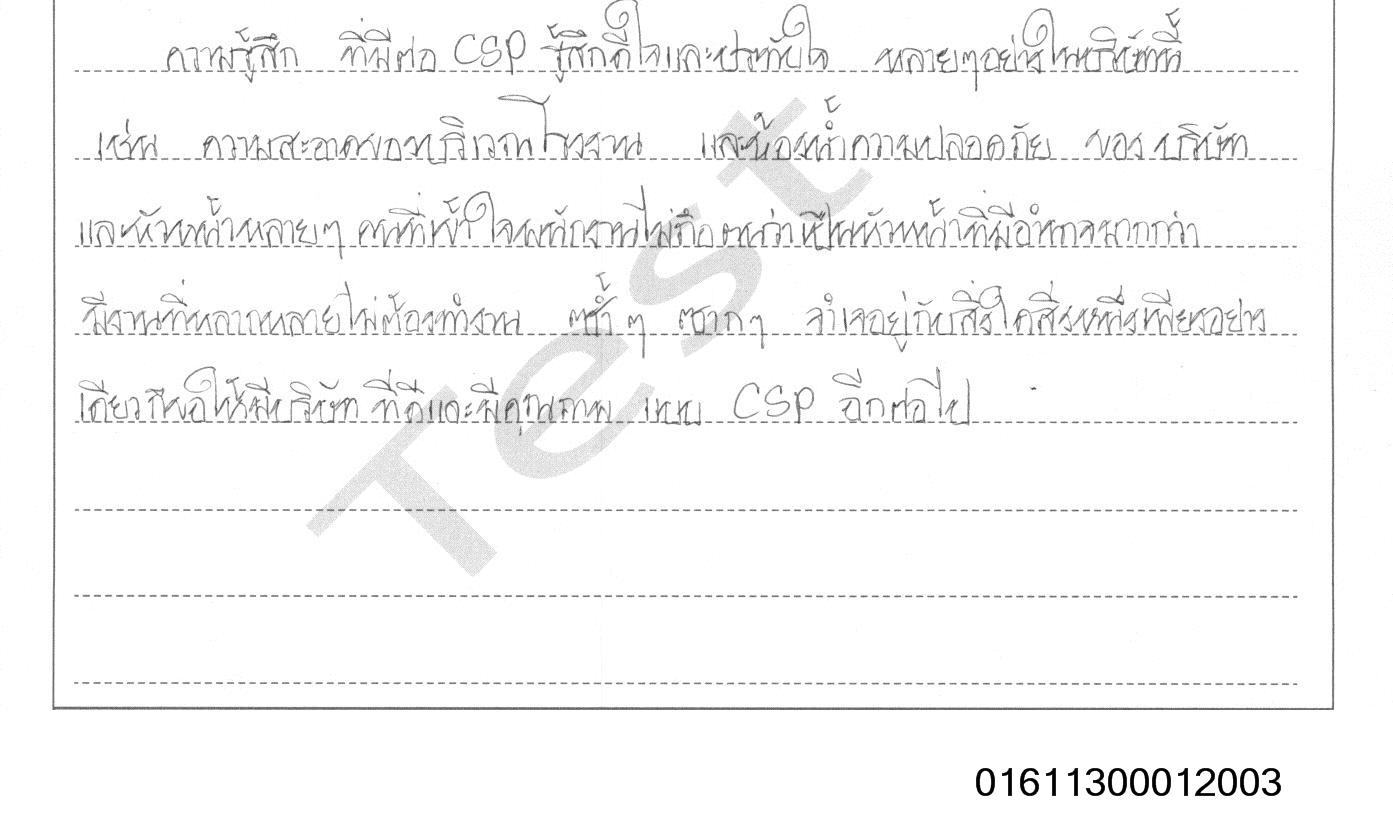 ความรู้สึก ที่มีต่อ CSP รู้สึกดีใจและประทับใจ หลายๆอย่างในบริษัทนี้
เช่น ความสะอาดของบริเวณโรงงาน และห้องน้ำความปลอดภัย ของ บริษัท
และหัวหน้าหลายๆ คนที่เข้าใจพนักงานไม่ถือตนว่าเป็นหัวหน้าที่มีอำนาจมากกว่า
มีงานที่หลากหลายไม่ต้องทำงาน ซ้ำๆ ซากๆ จำเจอยู่กับสิ่งใดสิ่งหนึ่งเพียงอย่าง
เดียว ขอให้มีบริษัท ที่ดีและมีคุณภาพ แบบ CSP อีกต่อไป
Test
01611300012003